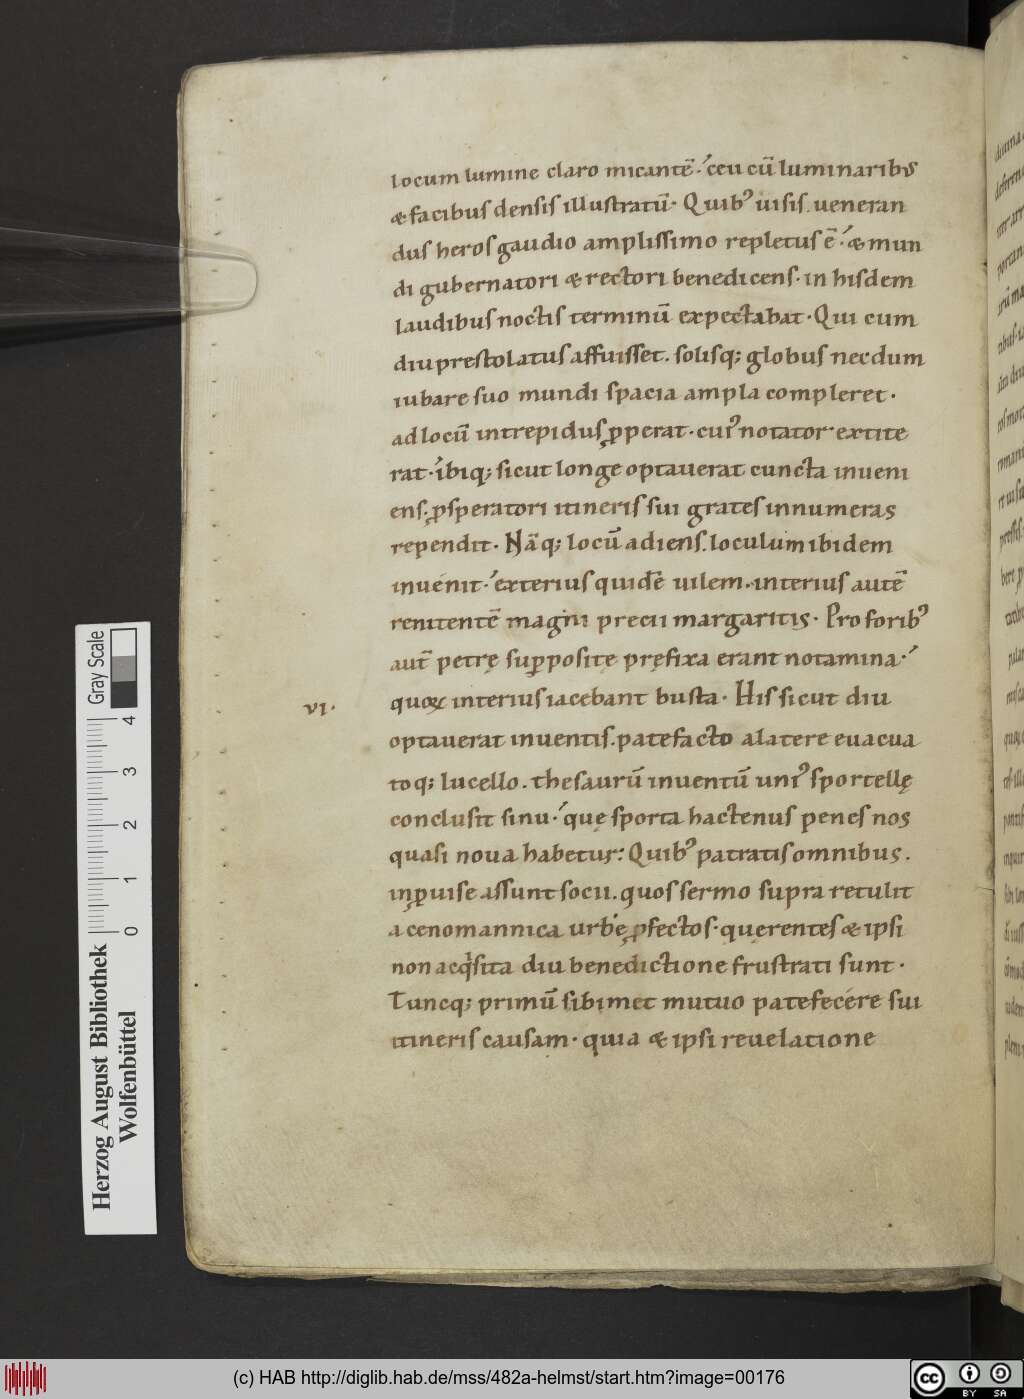 locum lumine claro micantē·́ ceu cū luminaribus
& facibus densis illustratū· Quibꝰ uisis. ueneran
dus heros gaudio amplissimo repletus ē·́ & mun
di gubernatori & rectori benedicens· in hisdem
laudibus noctis terminū expectabat· Qui cum
diu prestolatus affuisset. solisq; globus necdum
iubare suo mundi spacia ampla compleret·
ad locū intrepidus ꝓperat· cuiꝰ notator extite
rat· ibiq; sicut longe optauerat cuncta inueni
ens. ꝓsperatori itineris sui grates innumeras
rependit· Nāq; locū adiens. loculum ibidem
inuenit·́ exterius quidē uilem. interius autē
renitentē magni precii margaritis· Pro foribꝰ
aut̄ petrę suꝑposite pręfixa erant notamina·́
quoꝝ interius iacebant busta· His sicut diu
optauerat inuentis. patefacto a latere euacua
toq; lucello. thesaurū inuentū uniꝰ sportellę
conclusit sinu·́ quę sporta hactenus penes nos
quasi noua habetur: Quibꝰ patratis omnibus.
inꝓuise assunt socii. quos sermo supra retulit
a cenomannica urbe ꝓfectos· querentes & ipsi
non acqͥsita diu benedictione frustrati sunt·
Tuncq; primū sibimet mutuo patefecere sui
itineris causam· quia & ipsi reuelatione
VI·
Herzog August Bibliothek
Wolfenbüttel
0 1 2 3 4
Gray Scale
(c) HAB http://diglib.hab.de/mss/482a-helmst/start.htm?image=00176
cc BY SA